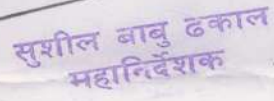 सुशील बाबु ढकाल
महानिर्देशक